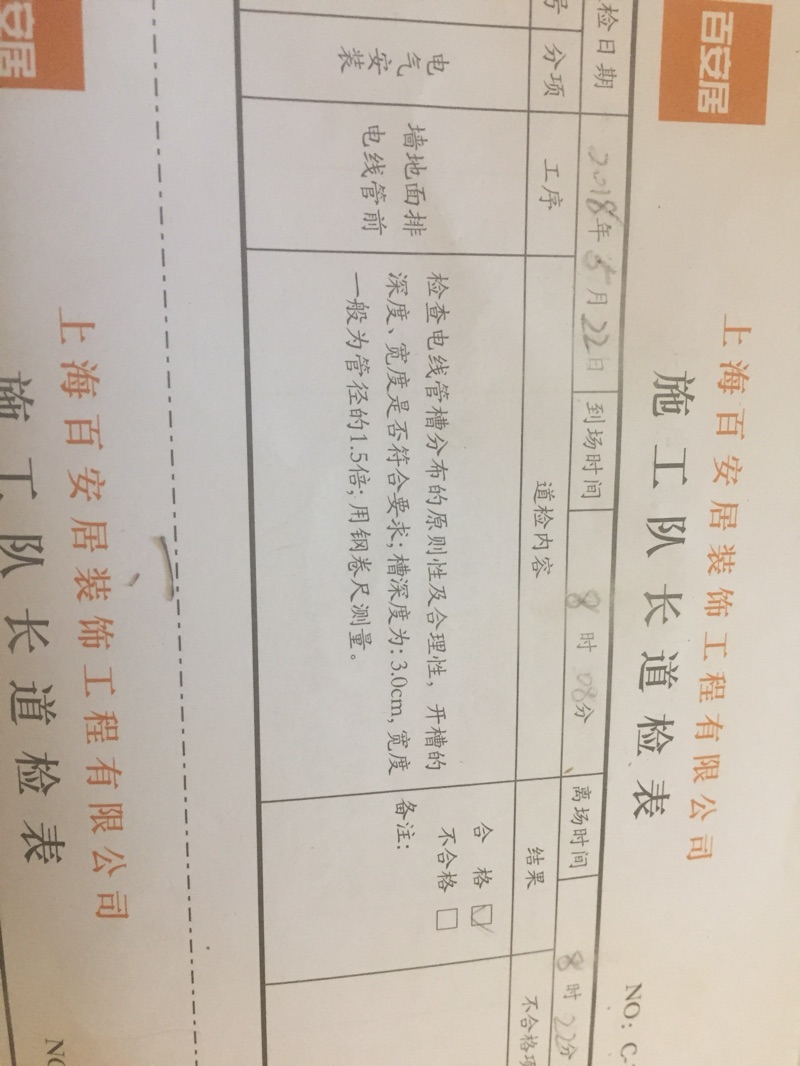 百安居
上海百安居装饰工程有限公司
施工队长道检表
NO: C-
检日期 2018年 月22日 到场时间 8时08分 离场时间 8时22分
号 分项 工序 道检内容 结果 不合格项
电气安装
墙地面排
电线管前
检查电线管槽分布的原则性及合理性，开槽的
深度、宽度是否符合要求；槽深度为：3.0cm，宽度
一般为管径的1.5倍；用钢卷尺测量。
合格 ☑
不合格 □
备注：
百安居
上海百安居装饰工程有限公司
施工队长道检表